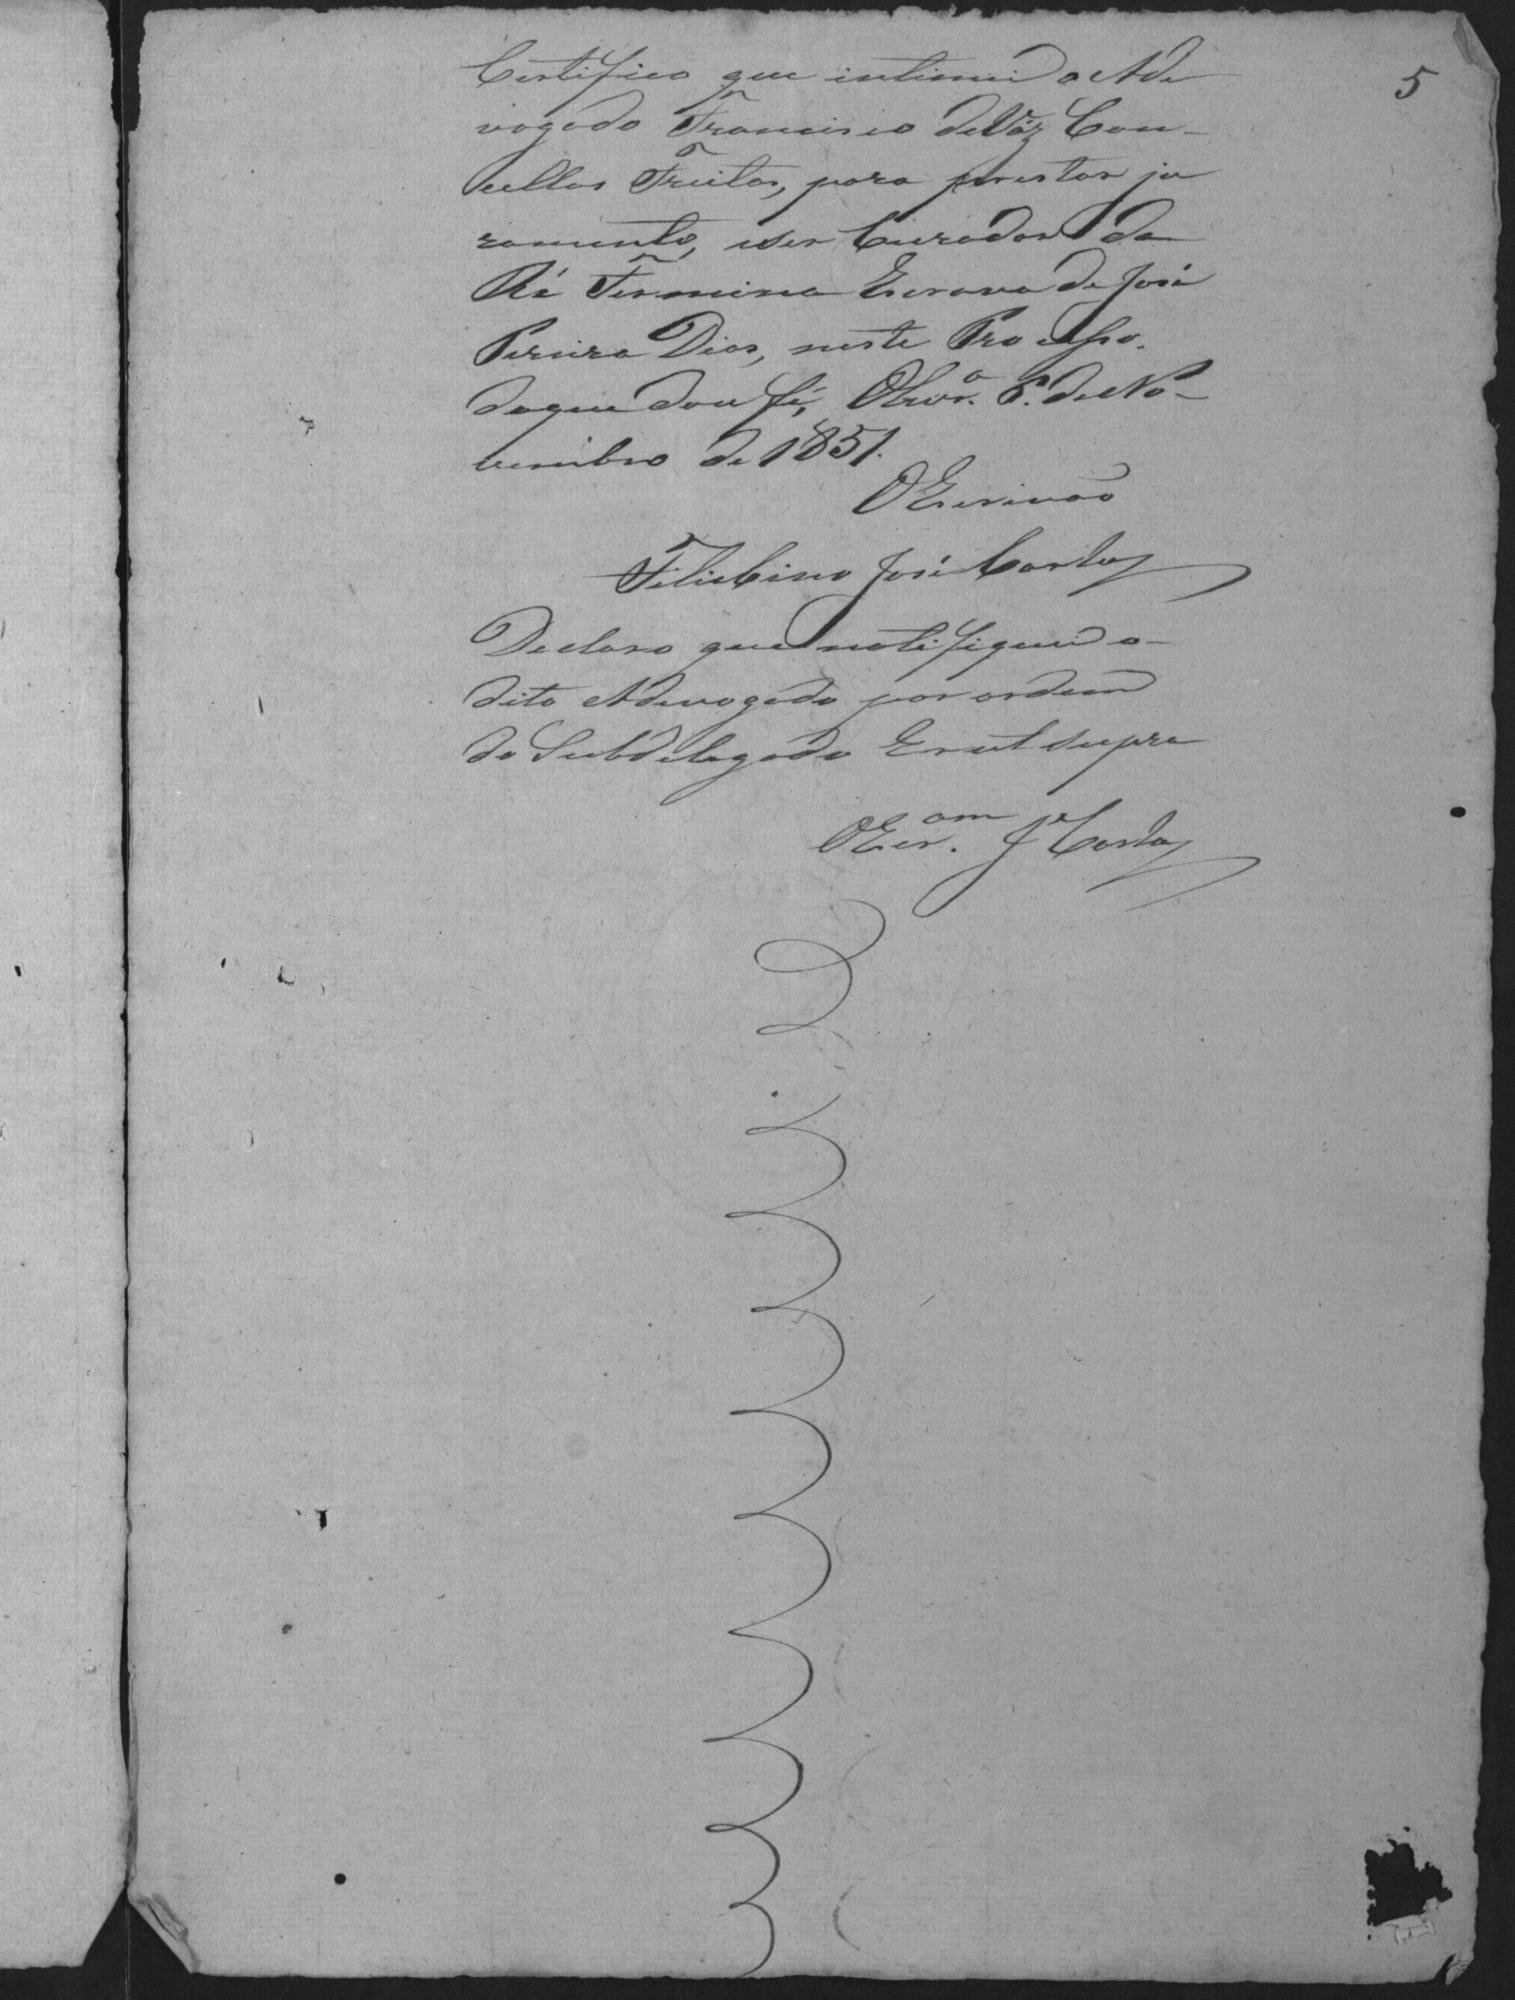 5
Certifico que intimei o Ade
vogado Francisco de Vaz Con-
cellos Freitas, para prestar ju
ramento, e ser Curador da
Ré Firmina Escrava de José
Pereira Dias, neste Processo.
do que dou fé, de No-
vembro de 1851.
O Escrivão
José Carlos
Declaro que notifiquei o
dito Adevogado por ordem
do Subdelegado Era ut supra
O Escr.am Je Carlos